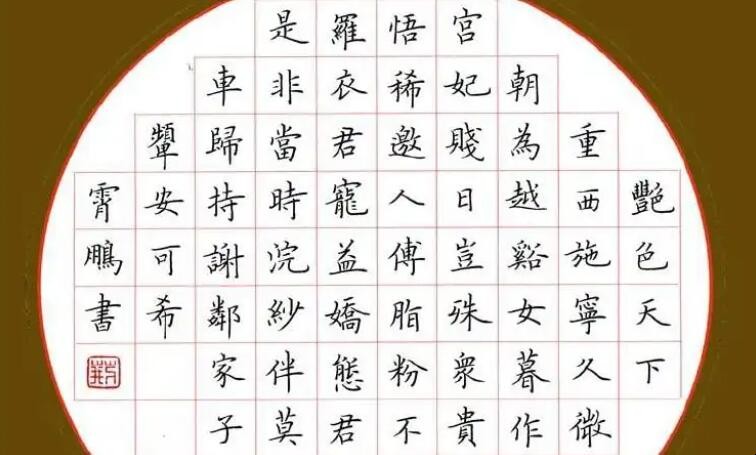 豔色天下
重西施寧久微
朝為越谿女暮作
宮妃賤日豈殊衆貴
悟稀邀人傅脂粉不
羅衣君寵益嬌態君
是非當時浣紗伴莫
車歸持謝鄰家子
顰安可希
霄鵬書